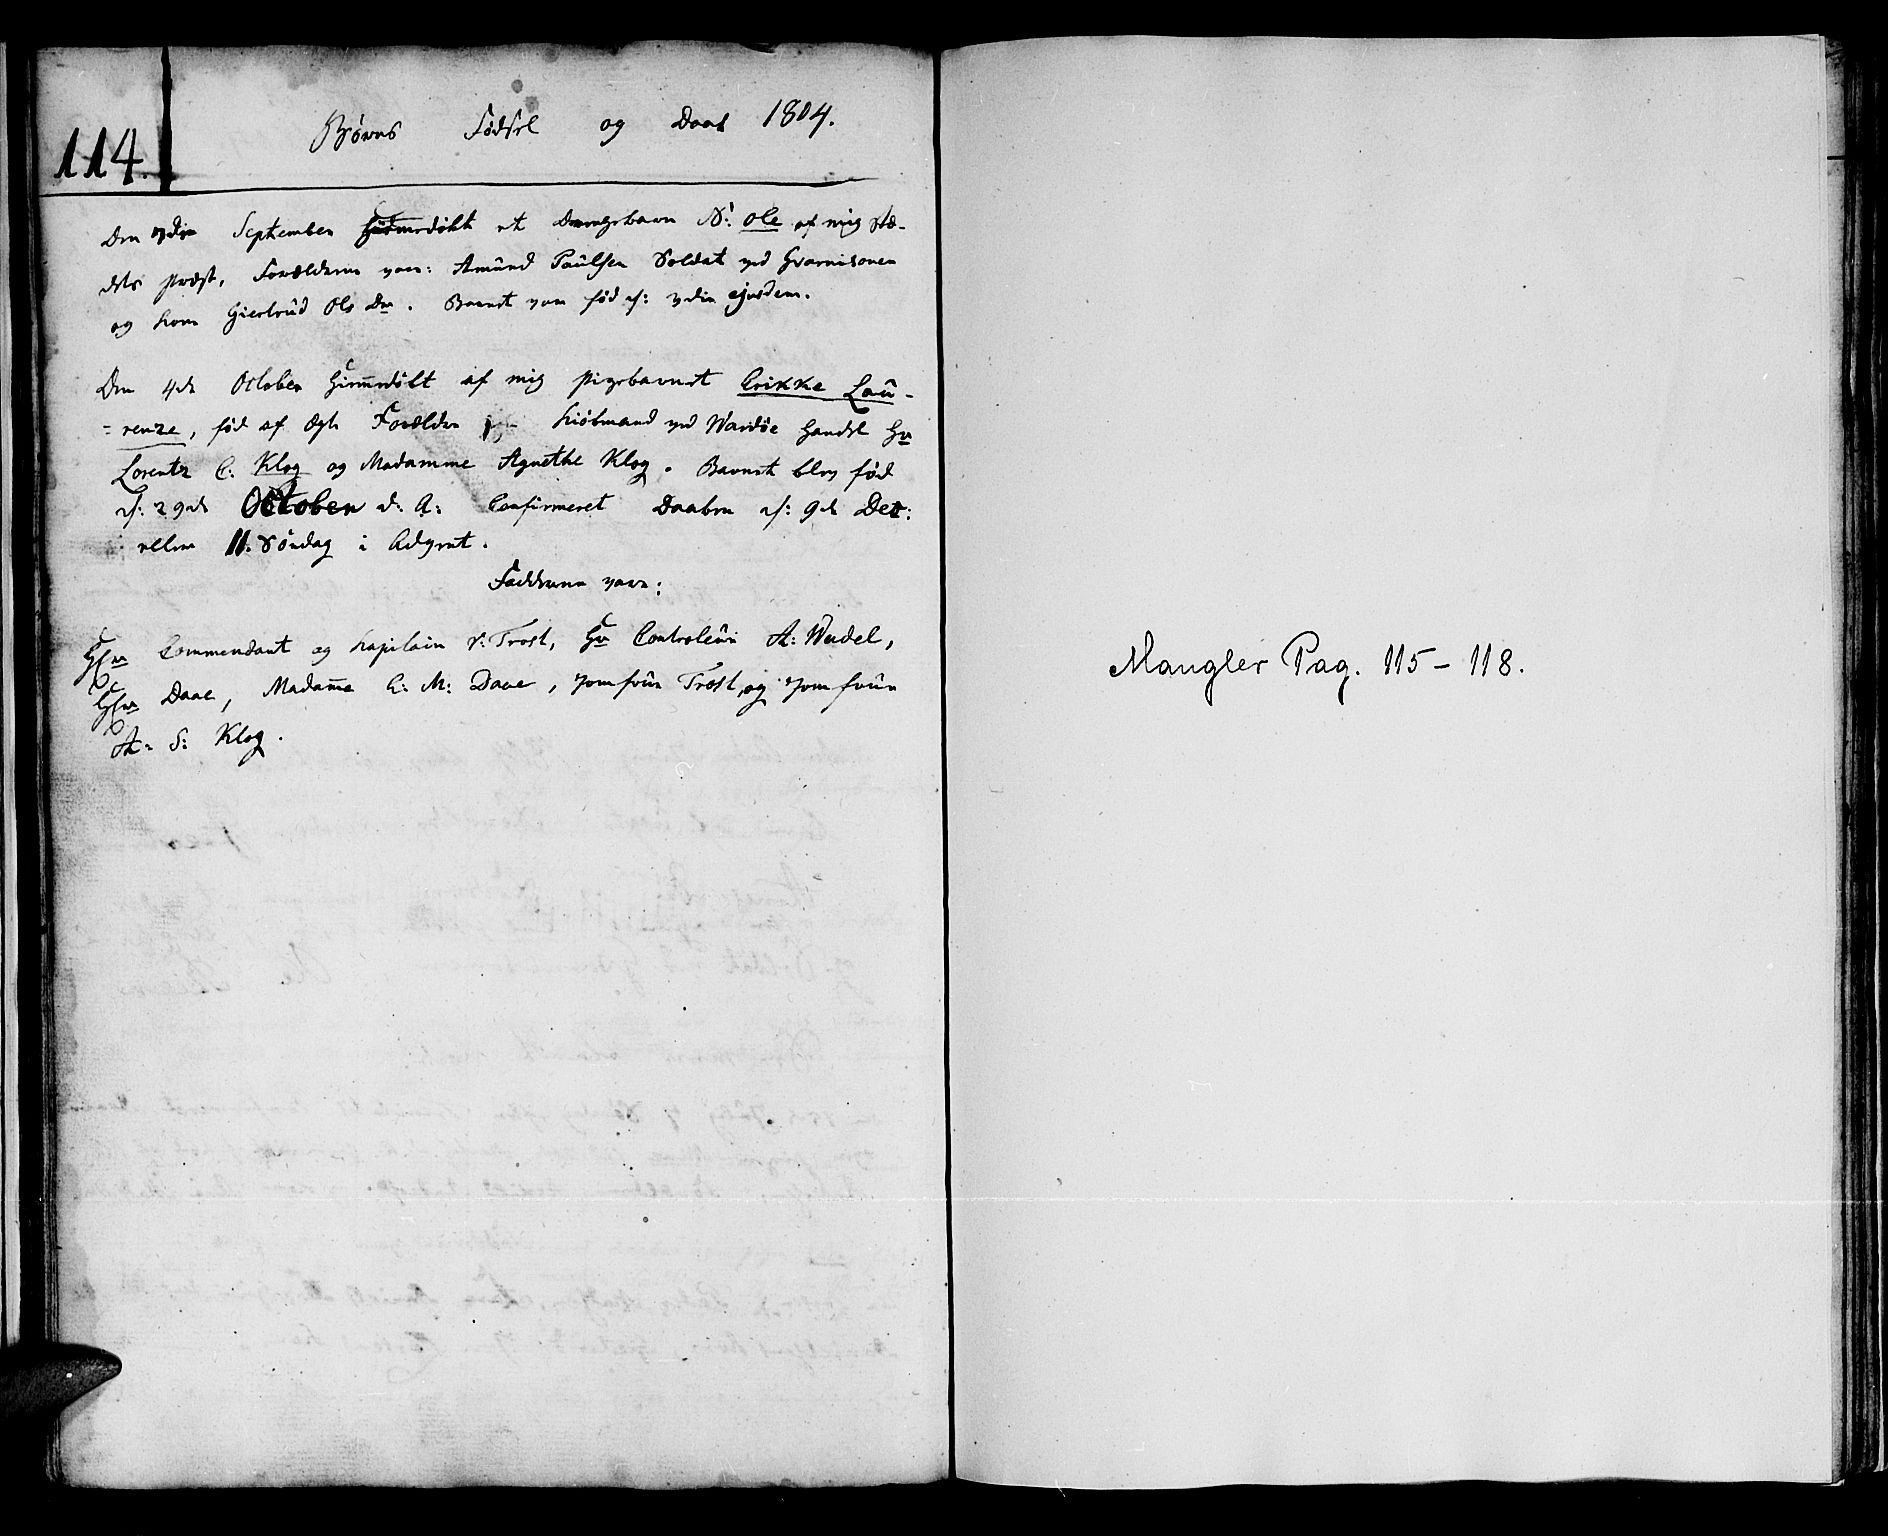 114.
Børns Fødsel og Daab 1804.
Den 7din September hiemmedøbt et Drengebarn N: Ole af mig Stæ-
dets Præst, Forældrene vare: Amund Paulsen Soldat ved Guarnisonen
og Kone Giertrud Ols Dr. Barnet var fød d: 7din ejusdem.
Den 4de October hiemmedøbt af mig Pigebarnet Erikke Lau-
=renze, fød af ægte Forældre Kiøbmand ved Wardøe Handel Hr
Lorentz C: Klog og Madamme Agnethe Klog. Barnet blev fød
d: 29de October d: A: Confirmeret Daaben d: 9de Dec:
eller II. Søndag i Advent.
Fadderne vare:
Hrr Commendant og Kapitain v: Trost, Hr Controleur A: Wadel,
Hrr Daae, Madame C: M: Daae, Jomfrue Trost, og Jomfrue
A: S: Klog.
Mangler Pag. 115 – 118.